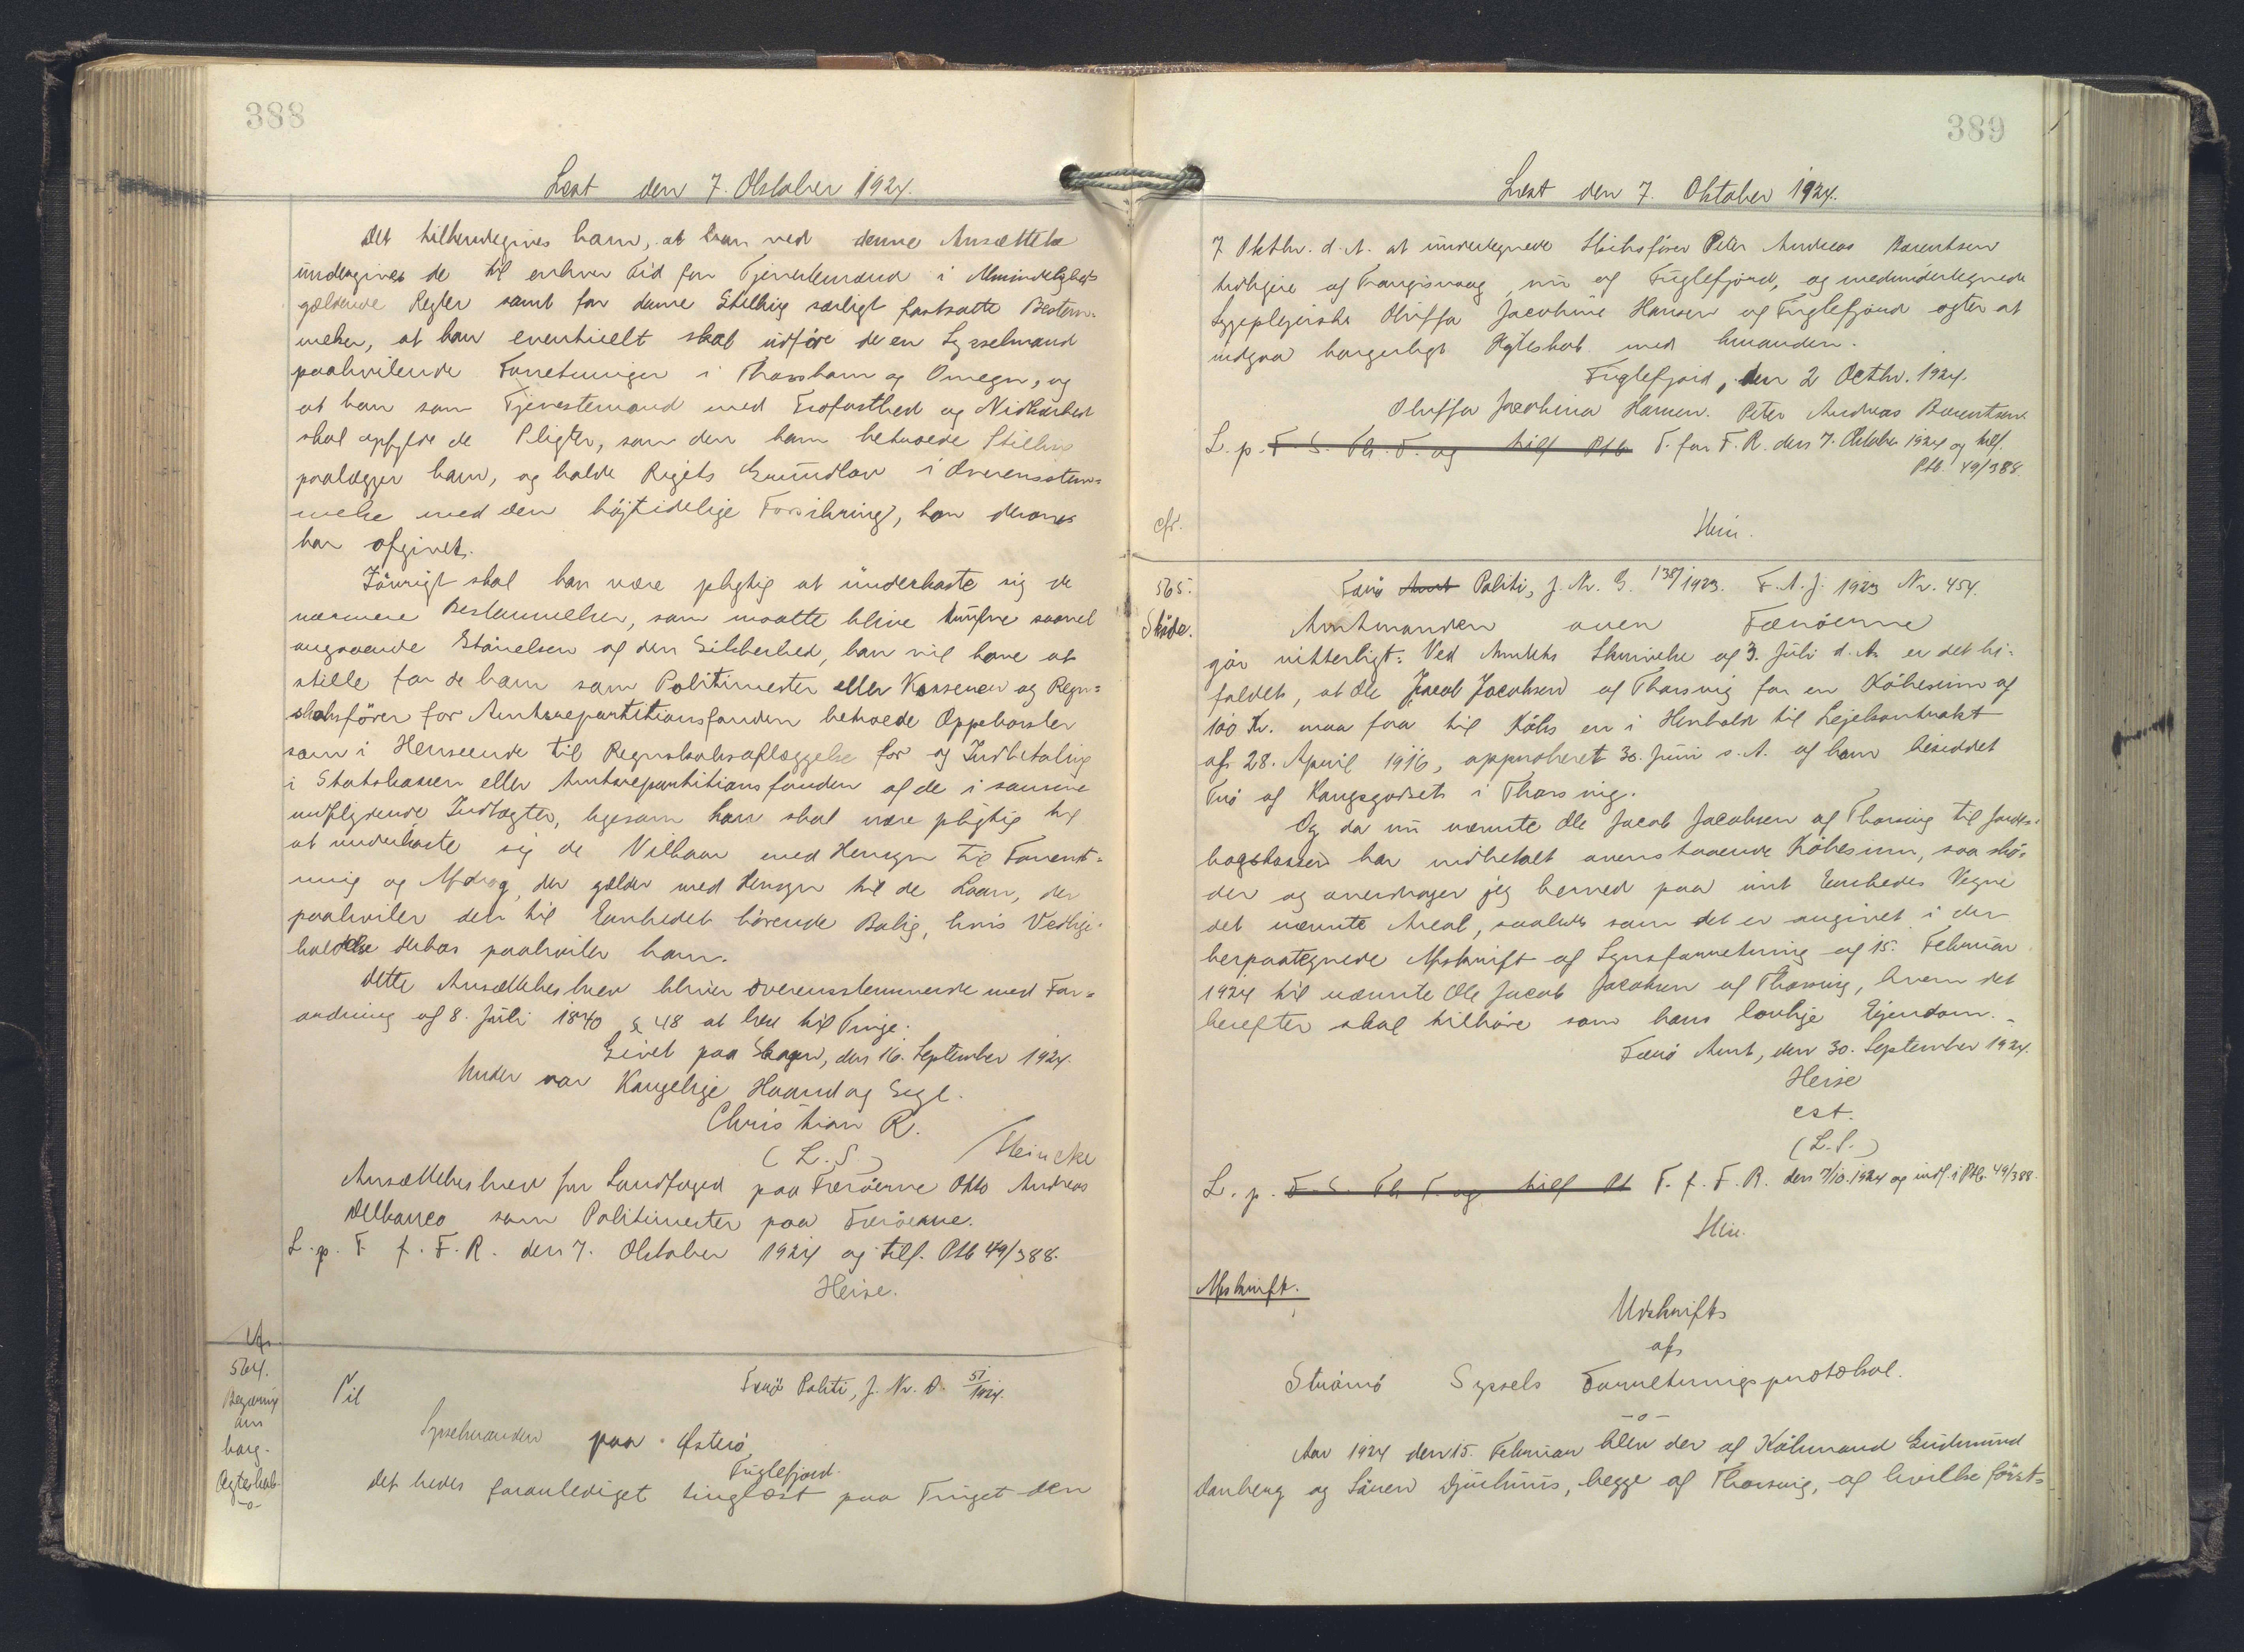 388
Læst den 7. Oktober 1924.
Det tilkendegives ham, at han ved denne Ansættelse
undergives de til enhver Tid for Tjenestemænd i Almindelighed
gældende Regler samt for denne Stilling særligt fastsatte Bestem-
melser, at han eventuelt skal udføre de en Sysselmand
paahvilende Forretninger i Thorshavn og Omegn, og
at han som Tjenestemand med Trofasthed og Nidkærhed
skal opfylde de Pligter, som den ham betroede Stilling
paalægger ham, og holde Rigets Grundlov i Overensstem-
melse med den højtidelige Forsikring, han derom
har afgivet.
Iøvrigt skal han være pligtig at underkaste sig de
nærmere Bestemmelser, som maatte blive trufne saavel
angaaende Størrelsen af den Sikkerhed, han vil have at
stille for de ham som Politimester eller Kasserer og Regn-
skabsfører for Amtsrepartitionsfonden betroede Oppebørsler
som i Henseende til Regnskabsaflæggelse for og Indbetaling
i Statskassen eller Amtsrepartitionsfonden af de i samme
indflydende Indtægter, ligesom han skal være pligtig til
at underkaste sig de Vilkaar med Hensyn til Forrent-
ning og Afdrag, der gælder med Hensyn til de Laan, der
paahviler den til Embedet hørende Bolig, hvis Vedlige-
holdelse derhos paahviler ham.
Dette Ansættelsesbrev bliver overensstemmende med For-
ordning af 8. Juli 1840 § 48 at læse til Tinge.
Givet paa Skagen, den 16. September 1924.
Under vor Kongelige Haand og Segl.
Christian R.
(L.S.) / Steincke
Ansættelsesbrev for Landfoged paa Færøerne Otto Andreas
Delbanco som Politimester paa Færøerne.
L. p. T. f. F. R. den 7. Oktober 1924 og tilf. Ptb 49/388.
Heise.
564.
Begæring
om
borg.
Ægteskab
-o-
Færø Politi, J. Nr. D. 51/1924.
Til
Sysselmanden paa Østerø,
Fuglefjord.
Det bedes foranlediget tinglæst paa Tinget den
389
Læst den 7. Oktober 1924.
7 Oktbr. d. A. at undertegnede Skibsfører Peter Andreas Barentsen
tidligere af Frangisvaag, nu af Fuglefjord, og medundertegnede
Sygeplejerske Oluffa Jacobine Hansen af Fuglefjord agter at
indgaa borgerligt Ægteskab med hinanden.
Fuglefjord, den 2 Octbr. 1924.
Oluffa Jacobina Hansen. Peter Andreas Barentsen
L. p. F. S. Th. T. og tilf Ptb T. for F. R. den 7. Oktober 1924 og tilf.
Ptb. 49/388.
cfr.
565.
Skøde.
Færø Amt Politi, J. Nr. G. 138/1923. F. A. J. 1923 Nr. 454.
Amtmanden over Færøerne
gør vitterligt: Ved Amtets Skrivelse af 3. Juli d. A. er det bi-
faldet, at Ole Jacob Jacobsen af Thorsvig for en Købesum af
100 Kr. maa faa til Købs en i Henhold til Lejekontrakt
af 28. April 1916, approberet 30. Juni s. A. af ham besiddet
Trø af Kongsgodset i Thorsvig.
Og da nu nævnte Ole Jacob Jacobsen af Thorsvig til Jorde-
bogskassen har indbetalt ovenstaaende Købesum, saa skø-
der og overdrager jeg herved paa mit Embedes Vegne
det nævnte Areal, saaledes som det er angivet i den
herpaategnede Afskrift af Synsforretning af 15. Februar
1924 til nævnte Ole Jacob Jacobsen af Thorsvig, hvem det
herefter skal tilhøre som hans lovlige Ejendom.
Færø Amt, den 30. September 1924.
Heise
cst.
(L.S.)
L. p. F. S. Th T. og tilf Pt T. f. F. R. den 7/10. 1924 og indf. i Ptb. 49/388.
Afskrift.
Udskrift
af
Strømø Syssels Forretningsprotokol.
-o-
Aar 1924 den 15. Februar blev der af Købmand Gudmund
Danberg og Søren Djurhuus, begge af Thorsvig, af hvilke først-